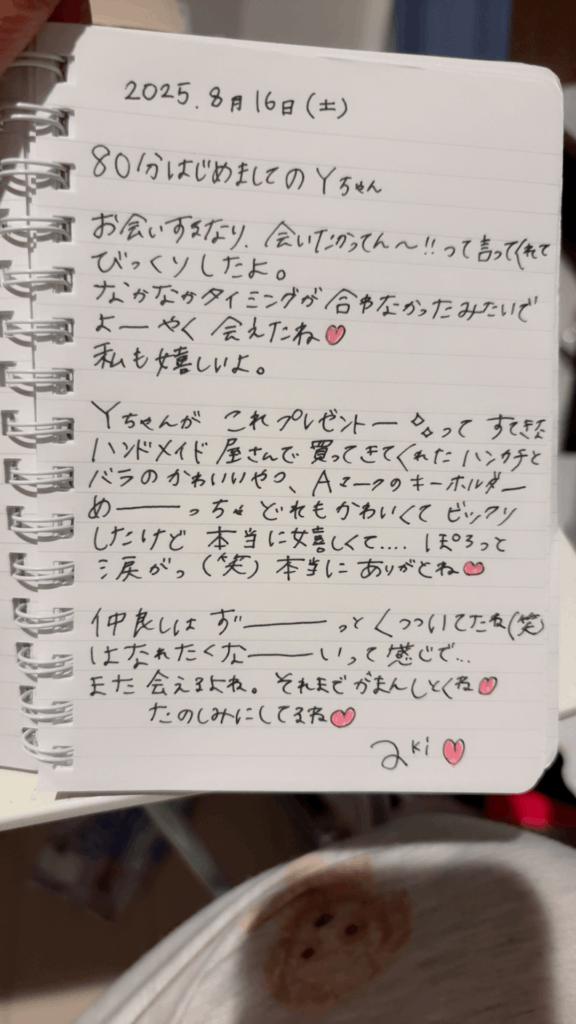 2025.8月16日(土)
80分はじめましてのYちゃん
お会いするなり、会いたかってん〜!!って言ってくれて
びっくりしたよ。
なかなかタイミングが合わなかったみたいで
よーやく会えたね♥
私も嬉しいよ。
Yちゃんが これプレゼントー✨って すてきな
ハンドメイド屋さんで買ってきてくれたハンカチと
バラのかわいいやつ、Aマークのキーホルダー
め———っちゃどれもかわいくてビックリ
したけど 本当に嬉しくて.... ぽろっと
涙がっ(笑) 本当にありがとね♥
仲良しは ず———っとくっついてたね(笑)
はなれたくな———いって感じで...
また会えるよね。それまでがまんしとくね♥
たのしみにしてるね♥
aki♥